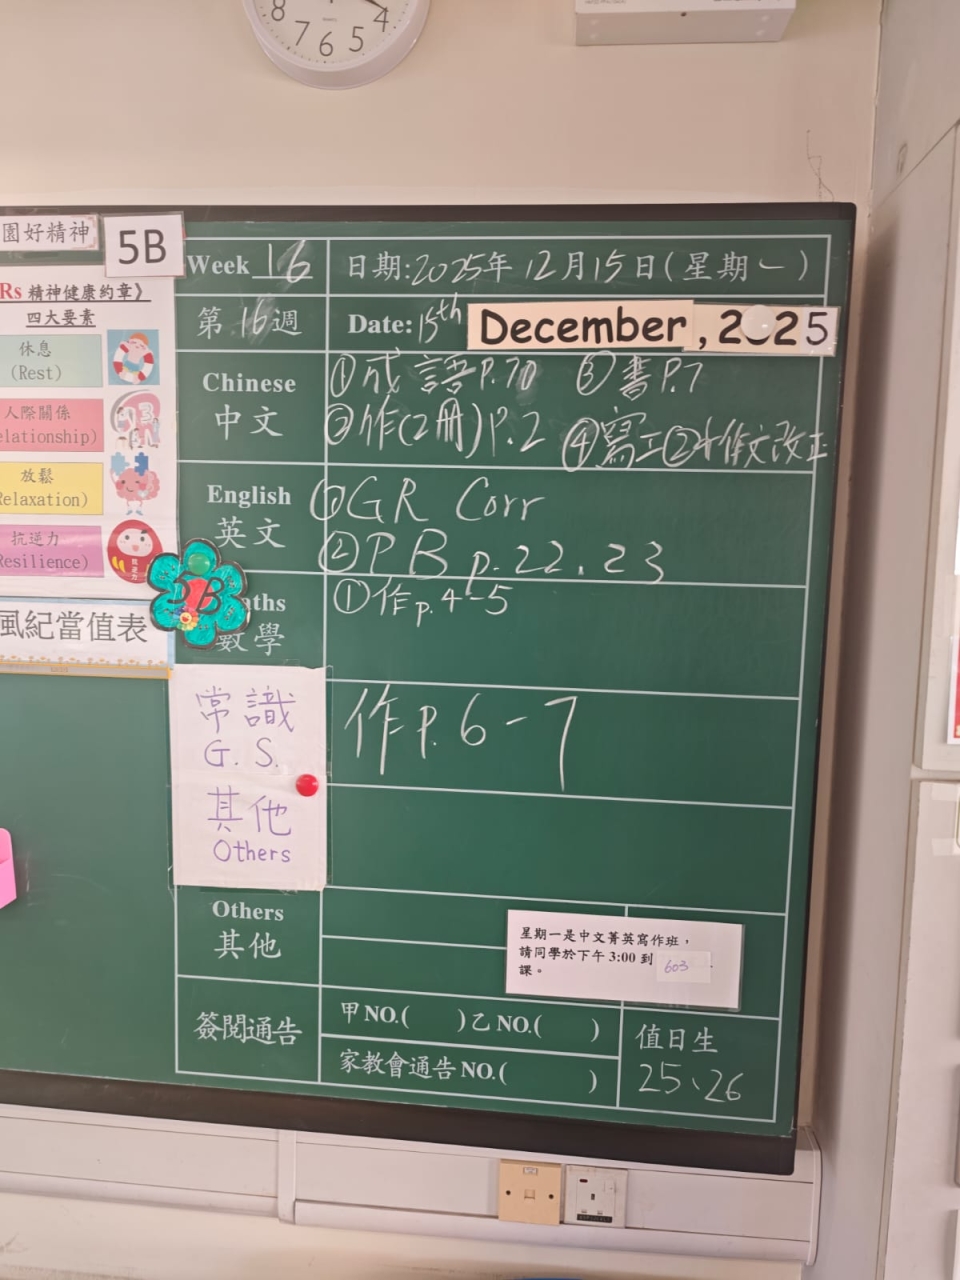 8 7 6 5 4
園好精神
5B
Rs 精神健康約章》
四大要素
休息
(Rest)
人際關係
elationship)
放鬆
Relaxation)
抗逆力
Resilience)
風紀當值表
Week 16
日期:2025年12月15日(星期一)
第16週
Date: 15th December, 2025
Chinese
中文
①成語P.70 ③書P.7
②作(2冊)P.2 ④寫工②作文改正
English
英文
①GR Corr
②PB p.22, 23
5B
aths
數學
①作p.4-5
常識
G.S.
作P.6-7
其他
Others
Others
其他
星期一是中文菁英寫作班，
請同學於下午 3:00 到 603
課。
簽閱通告
甲 NO.( )乙 NO.( )
家教會通告 NO.( )
值日生
25、26